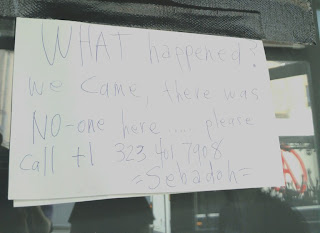 WHAT happened?
we came, there was
NO-one here ..... please
call +1 323 401 7908
=Sebadoh=